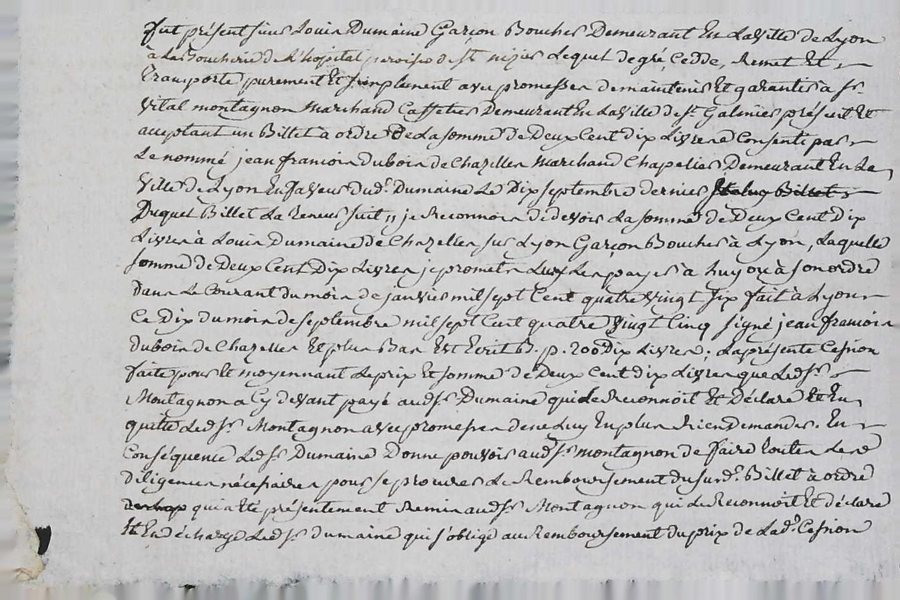 fut présent sieur Louis Dumaine Garçon Boucher Demeurant En La Ville de Lyon
à La Boucherie de L'hopital paroisse de St. nizier Lequel de gré, Cedde, Remet Et
transporte purement Et simplement avec promesse de maintenir Et garantir à sr.
Vital montagnon Marchand Caffetier Demeurant En La Ville de St. Galmier présent Et
acceptant un Billet à ordre De La somme de Deux Cent dix Livres Consenti par
Le nommé jean francois dubois de Chazelles Marchand Chapelier Demeurant En La
Ville de Lyon En faveur dud. Dumaine Le Dix septembre dernier
Duquel Billet La teneur suit,, je Reconnois de devoir La somme de Deux Cent Dix
Livres à Louis Dumaine de Chazelles sur Lyon Garçon Boucher à Lyon, Laquelle
somme de Deux Cent Dix Livres je promets Luy Les payer à Luy ou à son ordre
Dans Le Courant du mois de janvier mil sept Cent quatre Vingt six fait à Lyon
Ce Dix du mois de septembre mil sept Cent quatre Vingt Cinq signé jean francois
dubois de Chazelles Et plus Bas Est Ecrit B. p. 200 Dix Livres; La présente Cession
faite pour Et moyennant Le prix Et somme de Deux Cent dix Livres que Led. sr.
Montagnon a Cy devant payé aud. sr. Dumaine qui Le Reconnoit Et Déclare Et En
quitte Led. sr. Montagnon avec promesse de ne Luy En plus Rien Demander. En
Conséquence Led. sr. Dumaine Donne pouvoir aud. sr. montagnon de faire toutes Les
diligences nécessaires pour se procurer Le Remboursement du susd. Billet à ordre
qui a été présentement Remis aud. sr. Montagnon qui Le Reconnoit Et déclare
Et En décharge Led. sr. dumaine qui s'oblige au Remboursement du prix de Lad. Cession